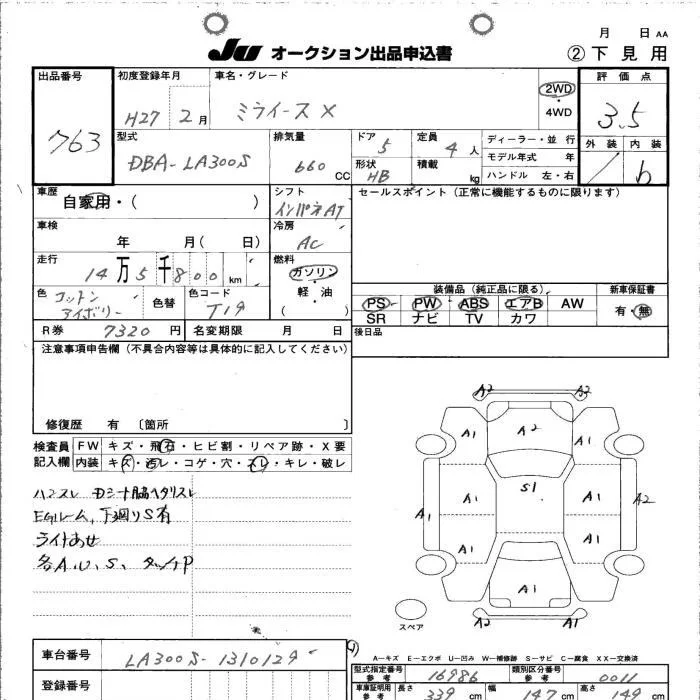 月 日 AA
JU オークション出品申込書 ②下見用
出品番号 初度登録年月 車名・グレード 評価点
763 H27 2月 ミライース X 2WD・4WD 3.5
型式 排気量 ドア 定員 ディーラー・並行 外装 内装
DBA-LA300S 660 CC 5 4人 モデル年式 年 b
形状 積載 ハンドル 左・右
HB kg
車歴 シフト セールスポイント(正常に機能するものに限ります)
自家用・( ) インパネAT
車検 冷房
年 月( 日) AC
走行 燃料
14万5千800km ガソリン・軽油
( )
色 色替 色コード 装備品(純正品に限る) 新車保証書
コットンアイボリー T19 PS PW ABS エアB AW 有・無
SR ナビ TV カワ
R券 7320円 名変期限 月 日 後日品
注意事項申告欄(不具合内容等は具体的に記入してください)
修復歴 有 〔箇所 〕
検査員記入欄 FW キズ・飛石・ヒビ割・リペア跡・X要
内装 キズ・汚レ・コゲ・穴・スレ・キレ・破レ
ハンスレ Dシート脇ヘタリスレ
EGルーム、下廻りS有
ライトあせ
各A.U.S. タッチP
A2 A2
A1 A2 A1
S1
A1 A1 A1 A1 A2
A1 A1
A1
A2 A1
スペア
A-キズ E-エクボ U-凹み W-補修跡 S-サビ C-腐食 XX-交換済
車台番号 LA300S-1310129
型式指定番号 参考 16986 類別区分番号 参考 0011
登録番号 車庫証明用 参考 長さ 339 cm 幅 147 cm 高さ 149 cm